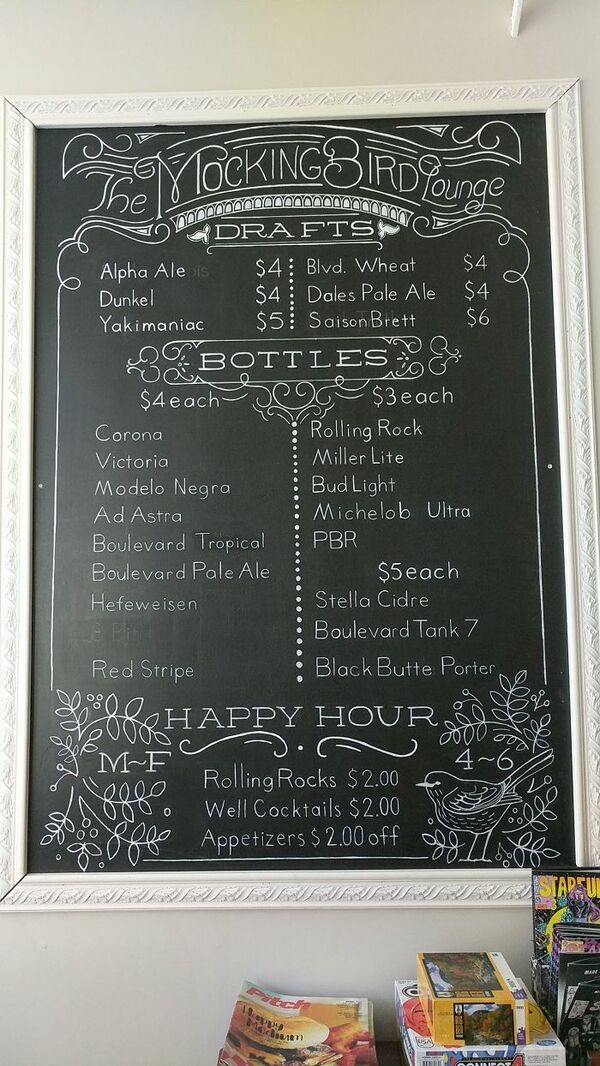 The MockingBird Lounge
DRAFTS
Alpha Ale $4
Dunkel $4
Yakimaniac $5
Blvd. Wheat $4
Dales Pale Ale $4
Saison Brett $6
BOTTLES
$4 each
Corona
Victoria
Modelo Negra
Ad Astra
Boulevard Tropical
Boulevard Pale Ale
Hefeweisen
Red Stripe
$3 each
Rolling Rock
Miller Lite
Bud Light
Michelob Ultra
PBR
$5 each
Stella Cidre
Boulevard Tank 7
Black Butte Porter
HAPPY HOUR
M~F
4~6
Rolling Rocks $2.00
Well Cocktails $2.00
Appetizers $2.00 off
Pitch